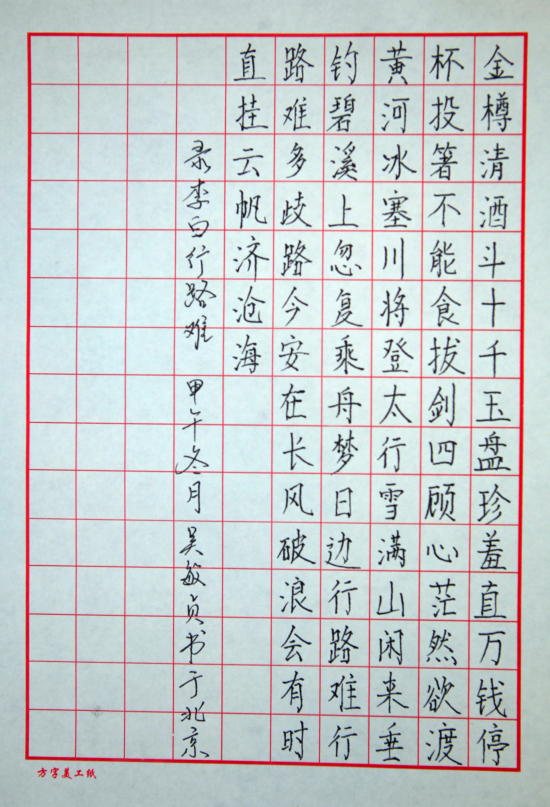 金樽清酒斗十千玉盘珍羞直万钱停
杯投箸不能食拔剑四顾心茫然欲渡
黄河冰塞川将登太行雪满山闲来垂
钓碧溪上忽复乘舟梦日边行路难行
路难多歧路今安在长风破浪会有时
直挂云帆济沧海
录李白行路难 甲午冬月 吴敏贞书于北京
方字美工纸